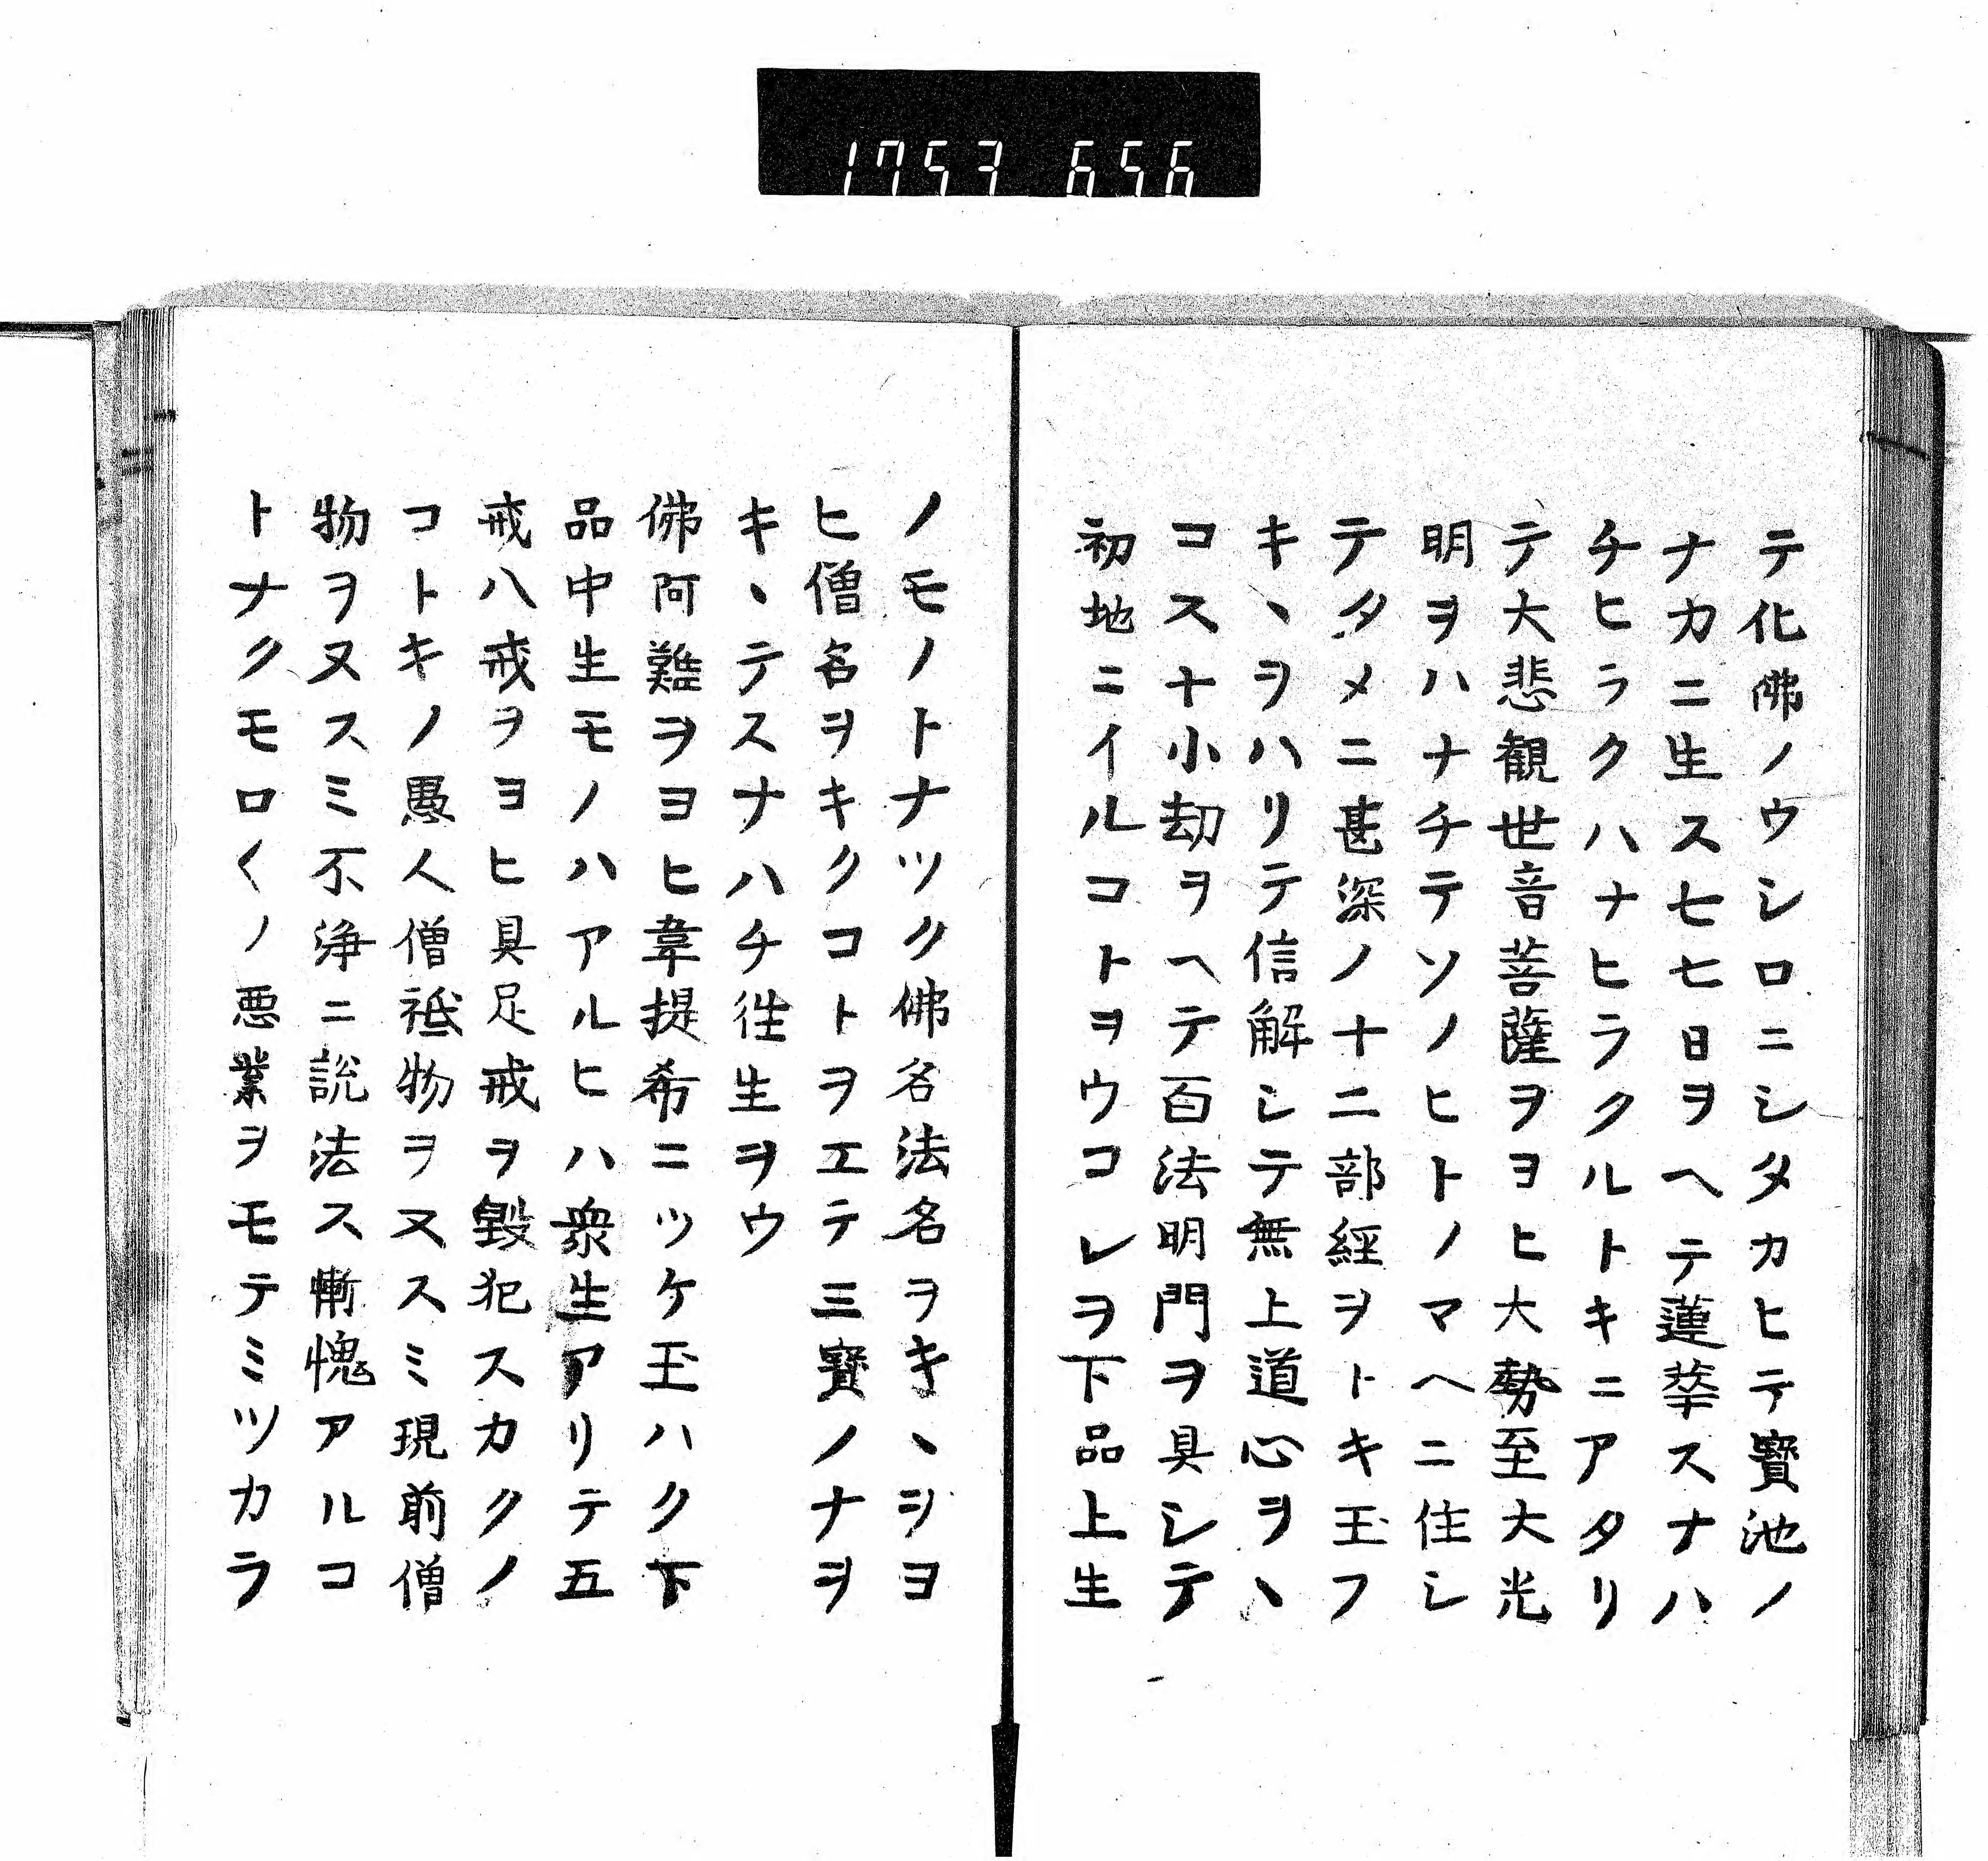 1753 656
テ化佛ノウシロニシタカヒテ寳池ノ
ナカニ生ス七七日ヲヘテ蓮華スナハ
チヒラクハナヒラクルトキニアタリ
テ大悲観世音菩薩ヲヨヒ大勢至大光
明ヲハナチテソノヒトノマヘニ住シ
テタメニ甚深ノ十二部經ヲトキ玉フ
キヽヲハリテ信解シテ無上道心ヲヽ
コス十小劫ヲヘテ百法明門ヲ具シテ
初地ニイルコトヲウコレヲ下品上生
ノモノトナツク佛名法名ヲキヽヲヨ
ヒ僧名ヲキクコトヲエテ三寳ノナヲ
キヽテスナハチ徃生ヲウ
佛阿難ヲヨヒ韋提希ニツケ玉ハク下
品中生モノハアルヒハ衆生アリテ五
戒八戒ヲヨヒ具足戒ヲ毀犯スカクノ
コトキノ愚人僧祇物ヲヌスミ現前僧
物ヲヌスミ不浄ニ説法ス慚愧アルコ
トナクモロ〱ノ悪業ヲモテミツカラ